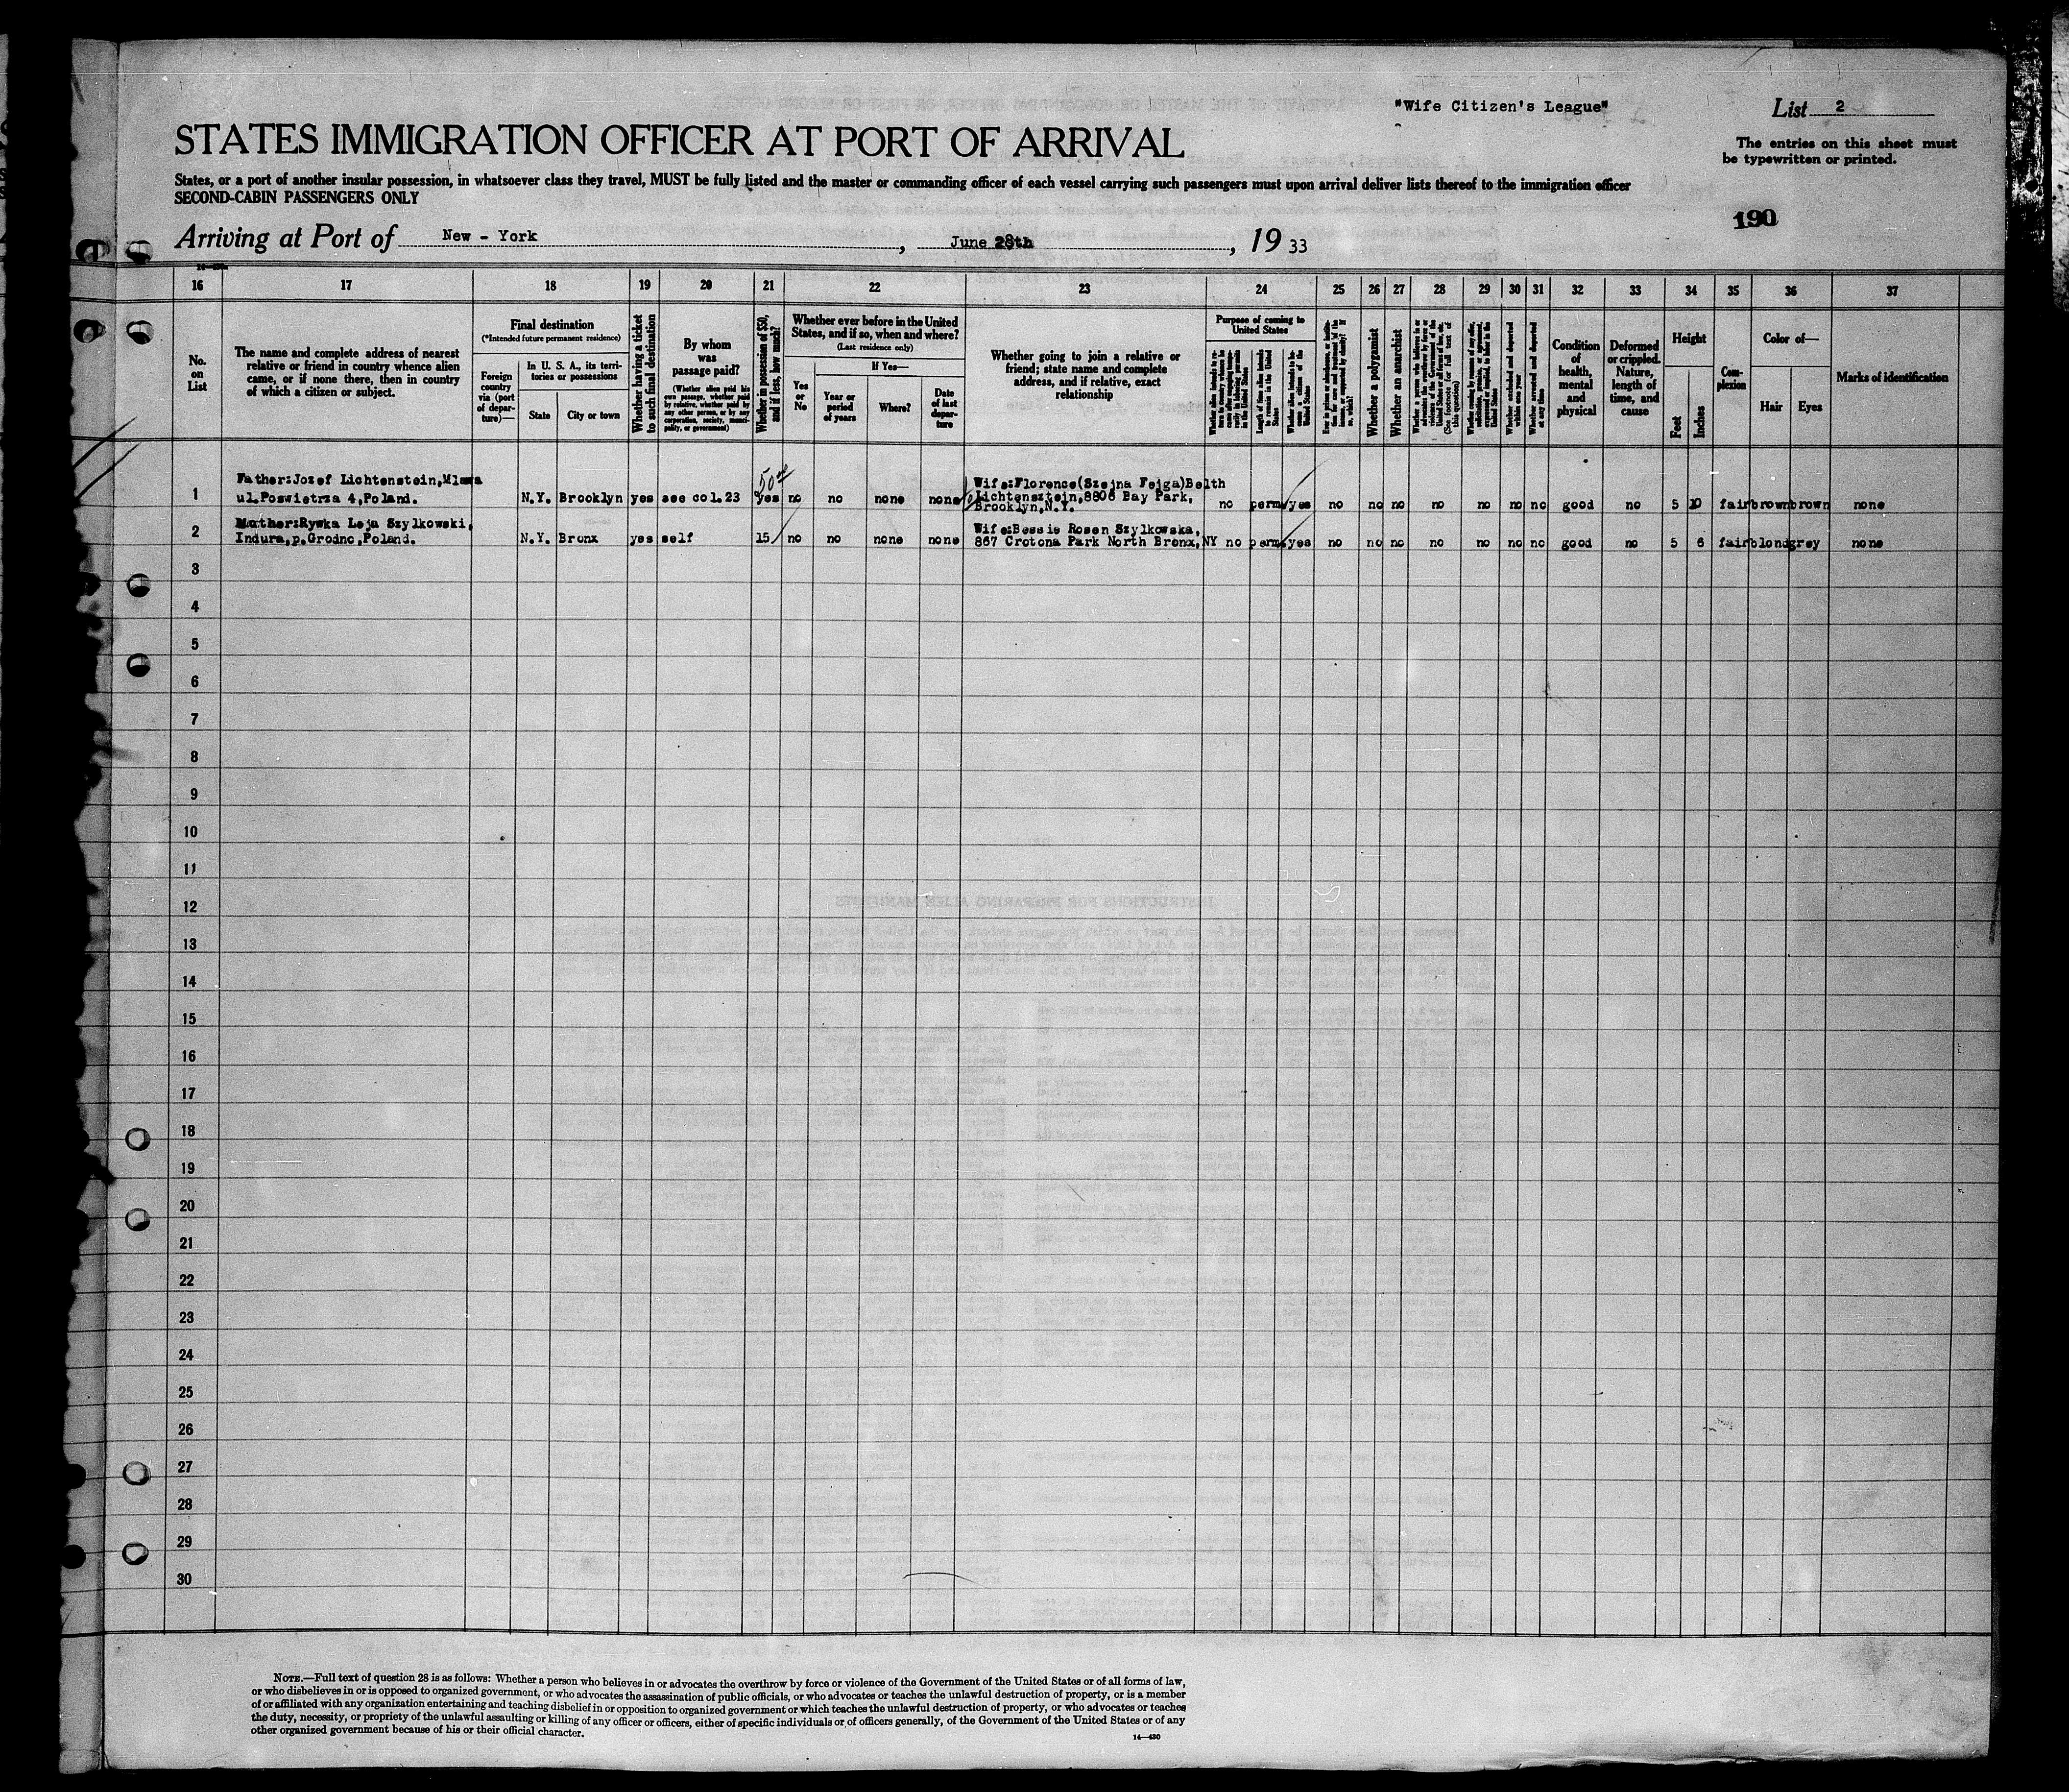 "Wife Citizen's League"
List 2
STATES IMMIGRATION OFFICER AT PORT OF ARRIVAL
The entries on this sheet must
be typewritten or printed.
States, or a port of another insular possession, in whatsoever class they travel, MUST be fully listed and the master or commanding officer of each vessel carrying such passengers must upon arrival deliver lists thereof to the immigration officer
SECOND-CABIN PASSENGERS ONLY
190
Arriving at Port of New - York, June 28th, 1933
16 17 18 19 20 21 22 23 24 25 26 27 28 29 30 31 32 33 34 35 36 37
No.
on
List
The name and complete address of nearest
relative or friend in country whence alien
came, or if none there, then in country
of which a citizen or subject.
Final destination
(*Intended future permanent residence)
Foreign
country
via (port
of depar-
ture)—
In U. S. A., its terri-
tories or possessions
State
City or town
Whether having a ticket
to such final destination
By whom
was
passage paid?
(Whether alien paid his
own passage, whether paid
by relative, whether paid by
any other person, or by any
corporation, society, munici-
pality, or government)
Whether in possession of $50,
and if less, how much?
Whether ever before in the United
States, and if so, when and where?
(Last residence only)
If Yes—
Yes
or
No
Year or
period
of years
Where?
Date
of last
depar-
ture
Whether going to join a relative or
friend; state name and complete
address, and if relative, exact
relationship
Purpose of coming to
United States
Length of time alien intends
to remain in the United
States
Whether a polygamist
Whether an anarchist
(See footnote for full text of
this question)
Whether arrested and deported
at any time
Condition
of
health,
mental
and
physical
Deformed
or crippled.
Nature,
length of
time, and
cause
Height
Feet
Inches
Com-
plexion
Color of—
Hair
Eyes
Marks of identification
50⁰⁰
Father:Jozef Lichtenstein,Mlawa
Wife:Florence(Szejna Fejga)Belth
1 ul.Poswietrza 4,Poland. N.Y. Brooklyn yes see col.23 yes no no none none Lichtensztein,8806 Bay Park, no perm yes no no no no no no no good no 5 10 fair brown brown none
Brooklyn,N.Y.
Mother:Rywka Leja Szylkowski,
Wife:Bessie Rosen Szylkowska,
2 Indura,p.Grodno,Poland. N.Y. Bronx yes self 15 no no none none 867 Crotona Park North Bronx,NY no perm yes no no no no no no no good no 5 6 fair blond grey none
3
4
5
6
7
8
9
10
11
12
13
14
15
16
17
18
19
20
21
22
23
24
25
26
27
28
29
30
NOTE.—Full text of question 28 is as follows: Whether a person who believes in or advocates the overthrow by force or violence of the Government of the United States or of all forms of law,
or who disbelieves in or is opposed to organized government, or who advocates the assassination of public officials, or who advocates or teaches the unlawful destruction of property, or is a member
of or affiliated with any organization entertaining and teaching disbelief in or opposition to organized government or which teaches the unlawful destruction of property, or who advocates or teaches
the duty, necessity, or propriety of the unlawful assaulting or killing of any officer or officers, either of specific individuals or of officers generally, of the Government of the United States or of any
other organized government because of his or their official character.
14—430